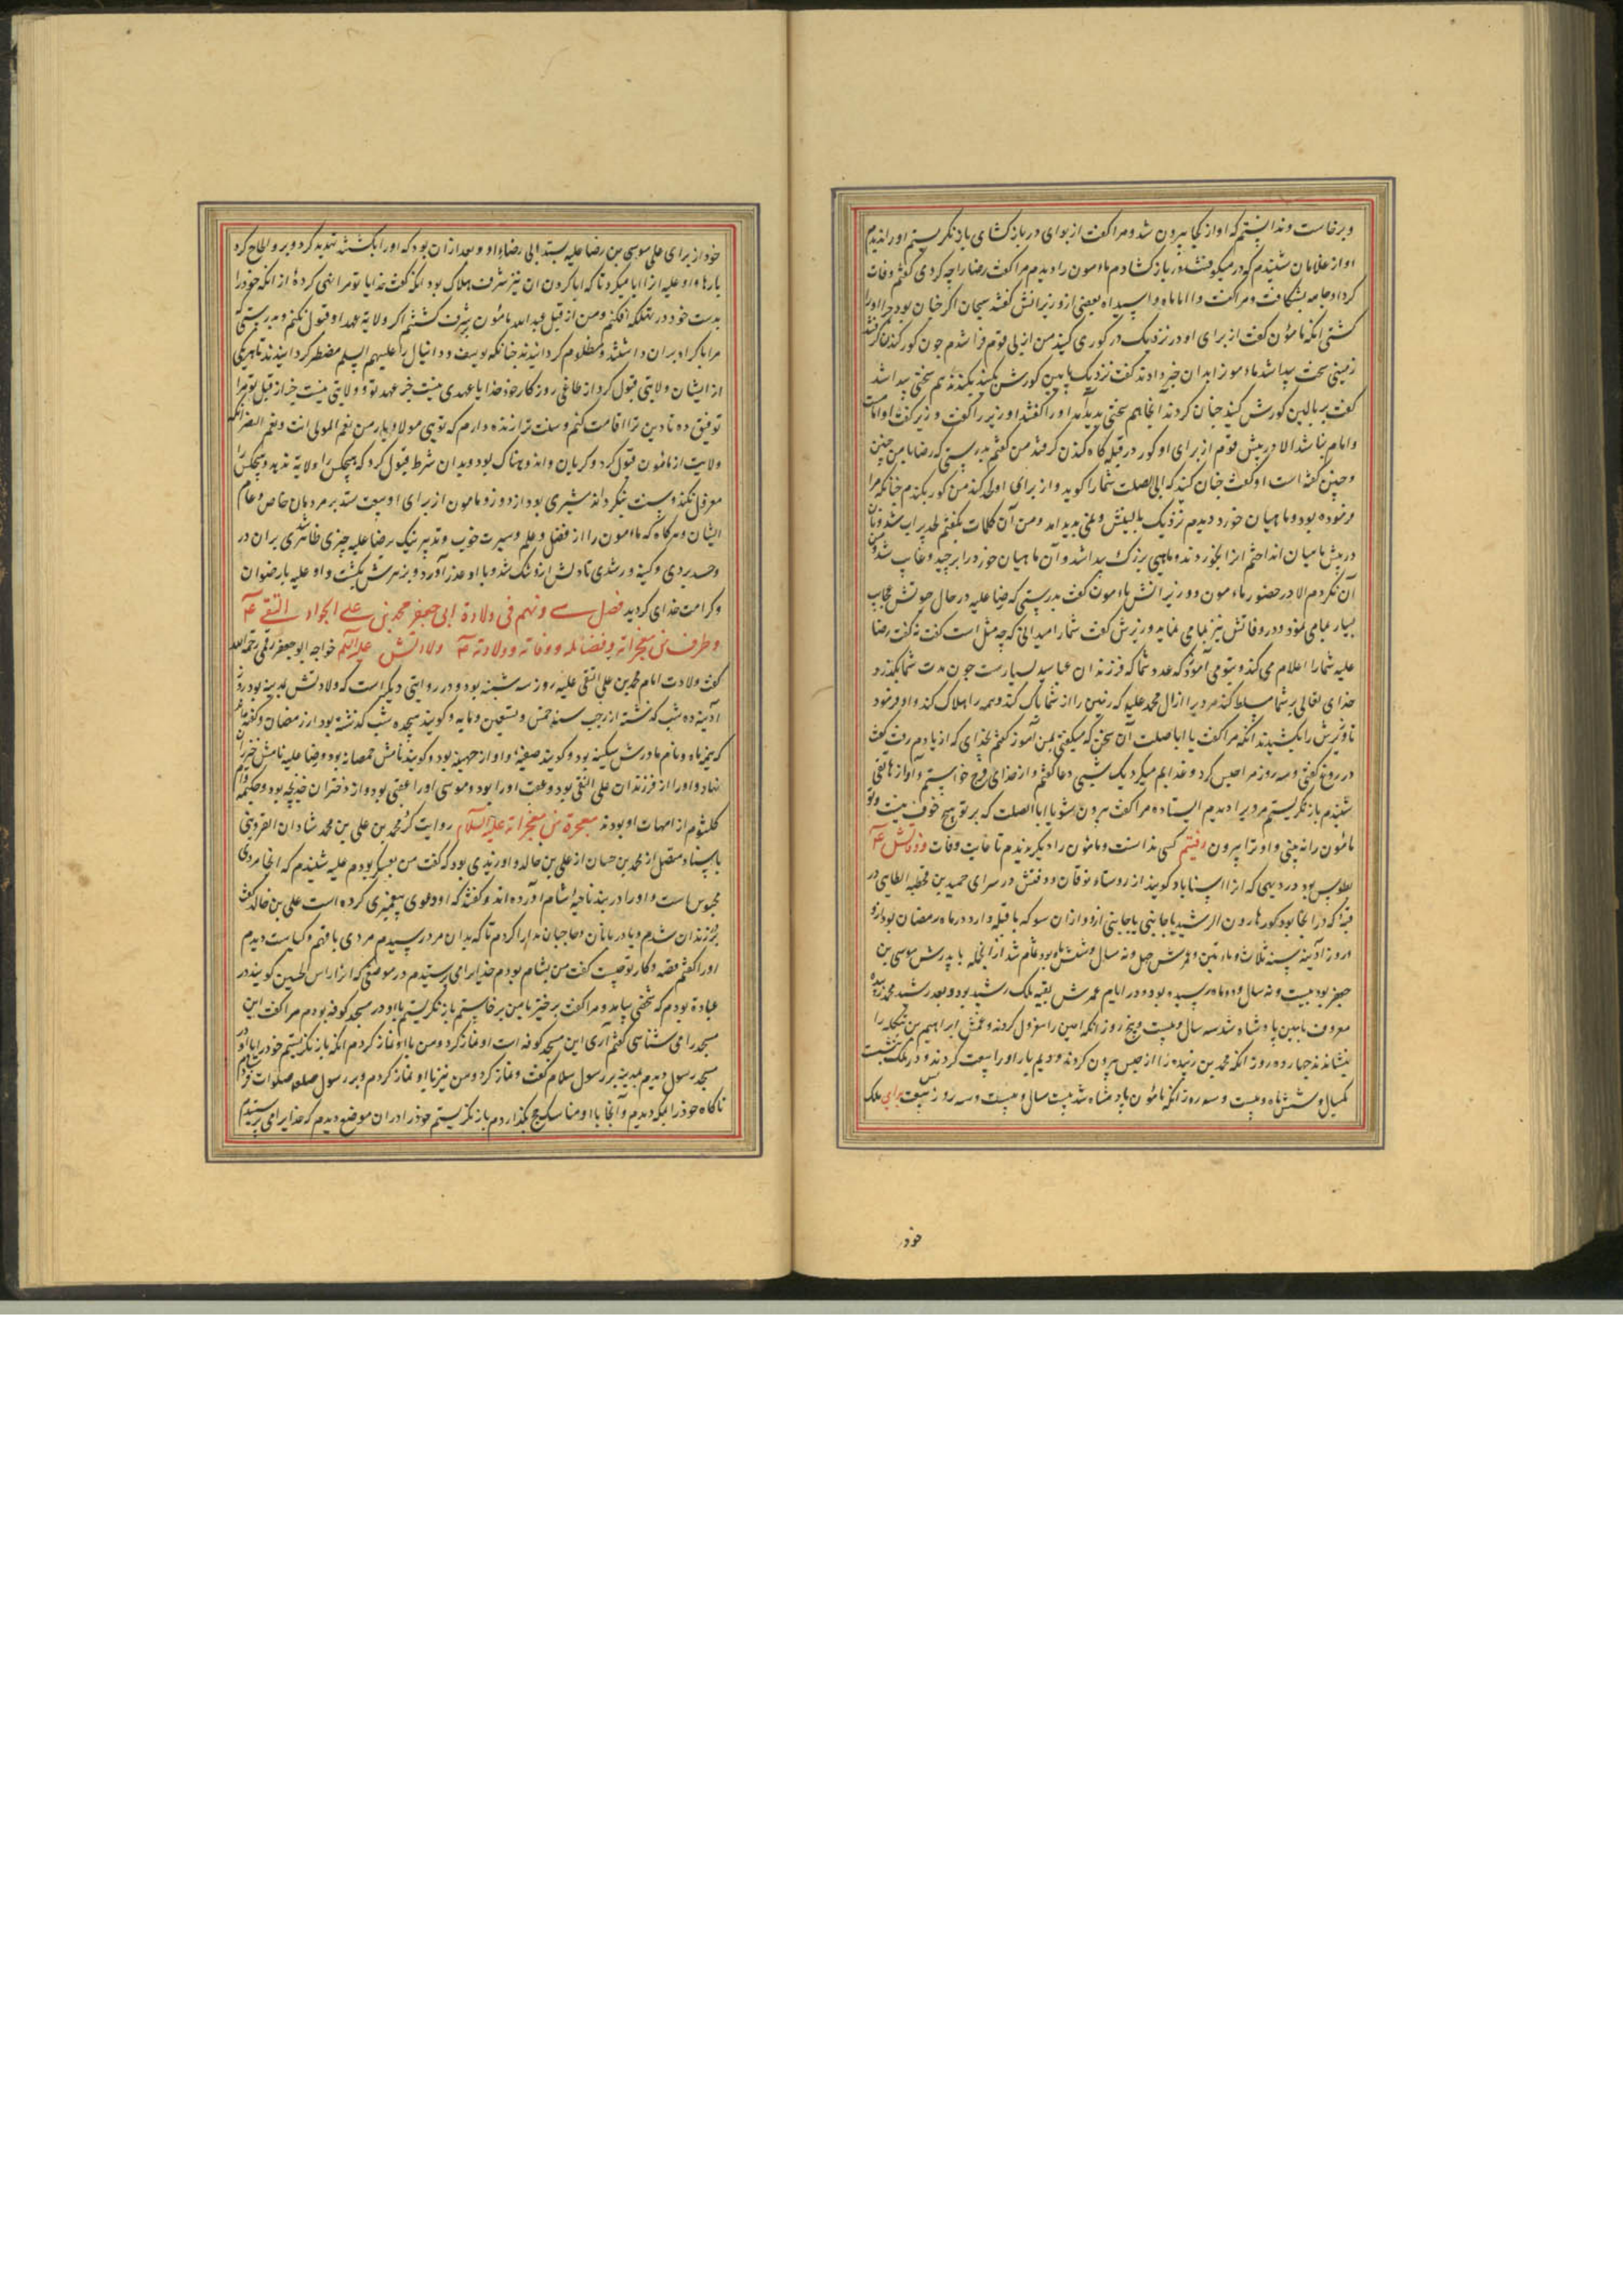 و برخاست و ندانستم که اواز کجا بیرون شد و مرا کفت از بوای در باز کشای باز نکریستم اورا ندیدم
اواز غلامان شنیدم که در میکوفتند در باز کشادم مامون را دیدم مرا کفت رضا را چه کردی کفتم وفات
کرد او جامه بشکافت و مرا کفت وا اماماه و اسیداه بعضی از وزیرانش کفتند سبحان اکر چنان بود چرا اورا
کشتی انکه مامون کفت از برای او در نزدیک در کوری کنید من از پی قوم فرا شدم چون کور کندن کرفتند
زمینی سخت پیدا شد مامون را بدان خبر دادند کفت نزدیک پایین کورش بکنید بکندند هم سختی پیدا شد
کفت بر بالین کورش کنید چنان کردند آنجا هم سختی پدید آمد اورا کفتند او وزیر را کفت وزیر کفت او امامست
و امام نباشد الا در پیش قوم از برای او کور در قبله کاه کندن کرفتند من کفتم بدرستی که رضا با من چنین
و چنین کفته است او کفت چنان کنید که ابی الصلت شما را کوید و از برای او لحد کنند من کور بکندم چنانکه مرا
فرموده بود و ماهیان خورد دیدم نزدیک بالینش و نمی پدید امد و من آن کلمات بکفتم لحد پر اب شد و نان
در پیش ماهیان انداختم انرا بخوردند و ماهیی بزرک پیدا شد و آن ماهیان خورد را برچید و غایب شد و من
آن نکردم الا در حضور مامون و وزیرانش مامون کفت بدرستی که رضا علیه در حال حیوتش عجایب
بسیار بما می نمود و در وفاتش نیز بما می نماید وزیرش کفت شما را میدانی که چه مثل است کفت نه کفت رضا
علیه شما را اعلام می کند و بتو می آموزد که عدد شما که فرزندان عباسید بسیارست چون مدت شما بکذرد
خدای تعالی بر شما مسلط کند مردی را از ال محمد علیه که زمین را از شما پاک کند و همه را هلاک کند و او فرمود
تا وزیرش را بکشیدند انکه مرا کفت یا ابا صلت آن سخن که میکفتی بمن آموز کفتم بخدای که از یادم رفت کفت
دروغ کفتی و سه روز مرا حبس کرد و عذابم میکرد یک شبی دعا کفتم و از خدای فرج خواستم و آواز هاتفی
شنیدم باز نکریستم مردی را دیدم ایستاده مرا کفت بیرون شو یا ابا الصلت که بر تو هیچ خوف نیست و تو
مامون را نه بینی و او ترا بیرون رفتیم کسی ندانست و مامون را دیکر ندیدم تا غایت وفات و وفاتش ع
بطوس بود در دیهی که انرا سناباد کویند از روستاء نوقان و دفنش در سرای حمید بن قحطبه الطایی در
قبه که در آنجا بود کور هارون الرشید یا جانبی یا جانبی ازو و ازان سو که با قبله دارد در ماه رمضان بود از و
و روز آدینه سنه ثلاث و ماتین و عمرش چهل و نه سال و شش ماه بود تمام شد از آنجمله با پدرش موسی بن
جعفر بود بیست و نه سال و دو ماه رسیده بود و در ایام عمرش بقیه ملک رشید بود و بعد رشید محمد زبیده
معروف بامین پادشاه شد سه سال و بیست و پنج روز انکه امین را معزول کردند و عمش ابراهیم بن شکله را
بنشاندند چهارده روز انکه محمد بن زبیده را از حبس بیرون کردند و دیم بار اورا بیعت کردند و در ملک بنشست
یکسال و شش ماه و بیست و سه روز انکه مامون پادشاه شد بیست سال و بیست و سه روز پس بیعت برای ملک
خود
خود از برای علی موسی بن رضا علیه بستد ابی رضاء او و بعد از ان بود که اورا بکشتنه تهدید کرد و برو الحاح کرد
بارها و او علیه از ان ابا میکرد تا که ابا کردن ان نیز مشرف هلاک بود انکه کفت خدایا تو مرا نهی کرده از انکه خود را
بدست خود در تهلکه افکنم و من از قبل عبدالله مامون مشرف کشتم اکر ولایه عهد او قبول نکنم و بدرستی که
مرا با کراه بران داشتند و مظلوم کردانیدند چنانکه یوسف و دانیال را علیهم السلم مضطر کردانیدند تا هریکی
از ایشان ولایتی قبول کرد از طاغی روزکار خود خدایا عهدی نیست جز عهد تو و ولایتی نیست جز از قبل تو مرا
توفیق ده تا دین ترا اقامت کنم و سنت ترا زنده دارم که تویی مولا و یار من نعم المولی انت و نعم النصیر انکه
ولایت از مامون قبول کرد و کریان و اندوهناک بود و بدان شرط قبول کرد که هیچکس را ولایه ندهد و هیچکس را
معزول نکند و سنت نکرداند مشیری بود از دور و مامون از برای او بیعت ستد بر مردمان خاص و عام
ایشان و هر کاه که مامون را از فضل و علم و سیرت خوب و تدبیر نیک رضا علیه چیزی ظاهر شدی بران در
وحسد بردی و کینه ور شدی تا دلش ازو تنک شد و با او عذر آورد و بزهرش بکشت و او علیه بارضوان
و کرامت خدای کردید فصل سی و نهم فی ولادة ابی جعفر محمد بن علی الجواد التقی ع
و طرف من معجزاته و فضائله و وفاته و ولادته ع ولادتش علیه السلم خواجه ابو جعفر قمی رحمه الله
کفت ولادت امام محمد بن علی التقی علیه روز سه شنبه بود و در روایتی دیکر است که ولادتش بمدینه بود روز
آدینه ده شب کذشته از رجب سنه خمس و تسعین و مایه و کویند هیجده شب کذشته بود از رمضان و کفته اند
که نیمه ماه و نام مادرش سکینه بود و کویند صفیه و او از جهینه بود و کویند نامش خمصانه بود و رضا علیه نامش خیزران
نهاد و اورا از فرزندان علی النقی بود و عقب اورا بود و موسی اورا عقبی بود و از دختران خدیجه بود و حکیمه و ام
کلثوم از امهات او بودند معجزة من معجزاته علیه السلام روایت کرد محمد بن علی بن محمد شادان القزوینی
باسناد متصل از محمد بن حسان از علی بن خالد و او زیدی بود که کفت من بعسکر بودم علیه شنیدم که انجا مردی
محبوس است و اورا در بند ناحیه شام آورده اند و کفتند که او دعوی پیغمبری کرده است علی بن خالد کفت
بر زندان شدم و با دربانان و حاجبان مدارا کردم تا که بدان مرد رسیدم مردی با فهم و کیاست دیدم
اورا کفتم قصه و کار تو چیست کفت من بشام بودم خدایرا می پرستیدم در موضعی که انرا راس الحسین کویند در
عبادة بودم که شخصی بیامد و مرا کفت برخیز با من برخاستم باز نکریستم با او در مسجد کوفه بودم مرا کفت این
مسجد را می شناسی کفتم آری این مسجد کوفه است او نماز کرد و من با او نماز کردم انکه باز نکریستم خود را با او در
مسجد رسول دیدم بمدینه بر رسول سلام کفت و نماز کرد و من نیز با او نماز کردم و بر رسول صلعم صلوات فرستادم
ناکاه خود را بمکه دیدم و آنجا با او مناسک حج بکذاردم باز نکریستم خود را در ان موضع دیدم که خدایرا می پرستیدم